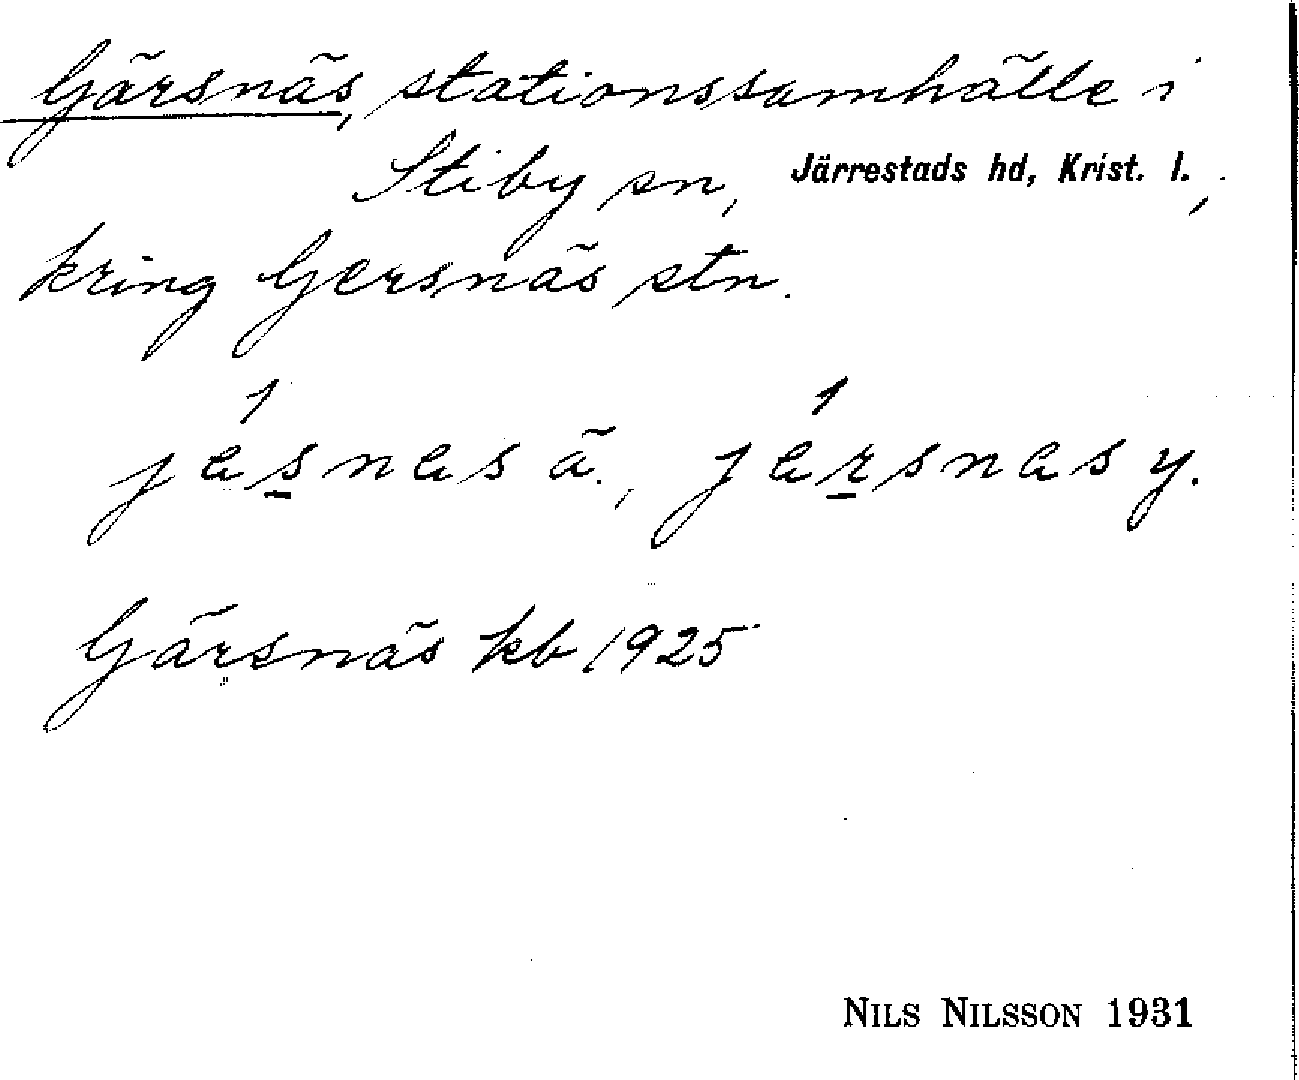 Gärsnäs, stationssamhälle i
Stiby sn, Järrestads hd, Krist. l.,
kring Gersnäs stn.
jɑ́s̠nɑs ä., jɑ́r̠snɑs y.
Gärsnäs kb 1925
NILS NILSSON 1931